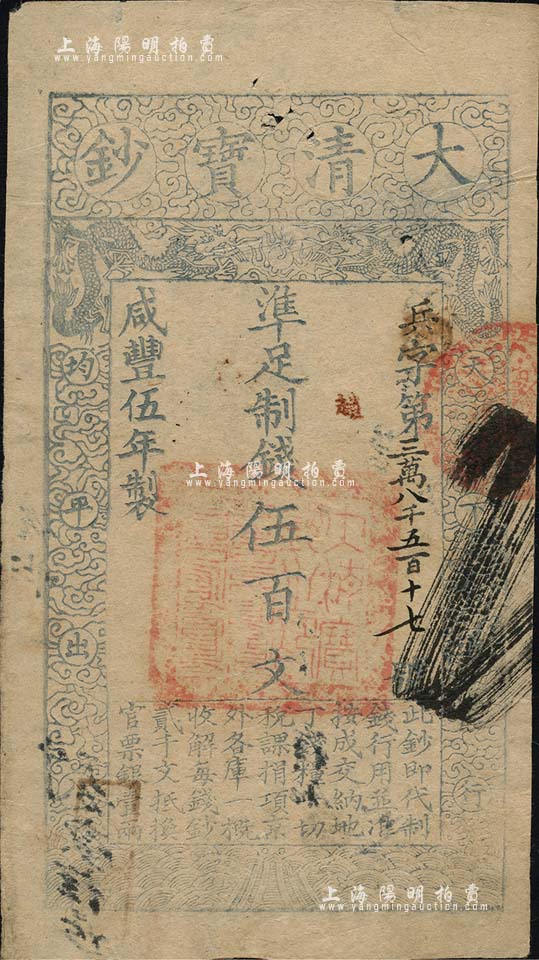 上海陽明拍賣
www.yangmingauction.com
大清寶鈔
天
下
行
均平出
兵字第三萬八千五百十七
準足制錢伍百文
咸豐伍年製
上海陽明拍賣
www.yangmingauction.com
此鈔即代制
錢行用並准
按成交納地
丁 切
稅課捐項京
外各庫一概
收解每錢鈔
貳千文抵換
官票銀壹兩
上海陽明拍賣
www.yangmingauction.com